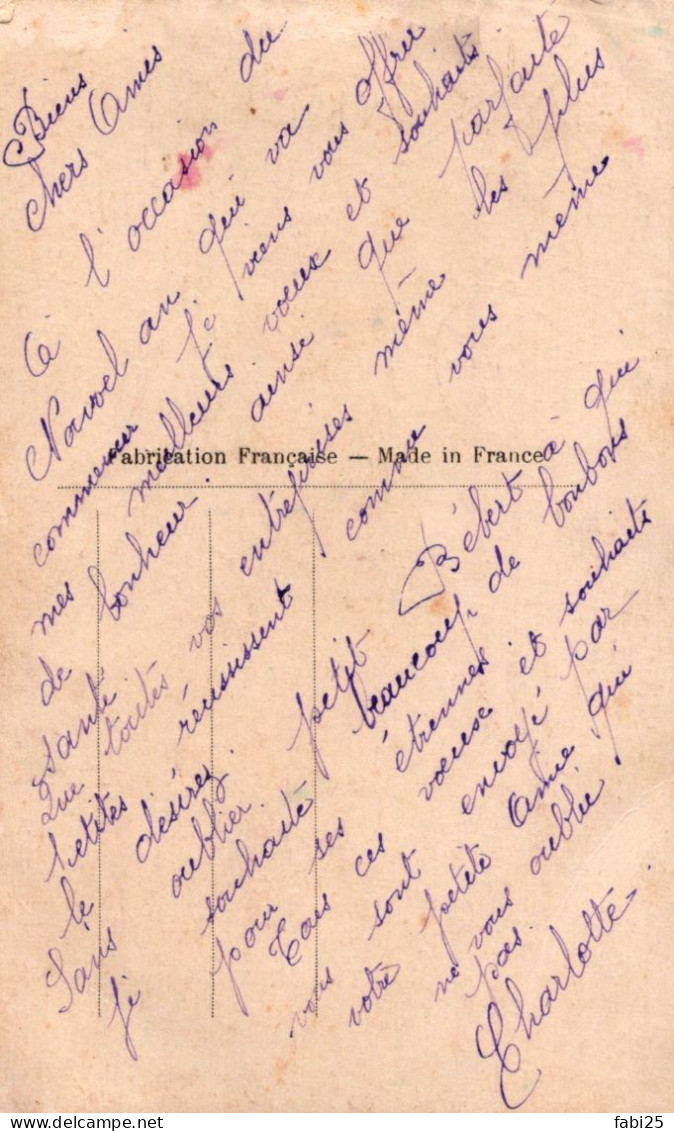 Biens
chers Amies
A l'occasion du
Nouvel an qui va
commencer je viens vous offrir
mes meilleurs vœux et souhaits
de bonheur ainsi que parfaite
santé
que toutes vos entreprises même les plus
petites réussissent comme vous même
le désirez.
Sans oublier petit Bébert à qui
je souhaite beaucoup de bonbons
pour ses étrennes
Tous ces vœux et souhaits
vous sont envoyé par
votre petite Amie qui
ne vous oublie
pas.
Charlotte.
Fabrication Française — Made in France
fabi25